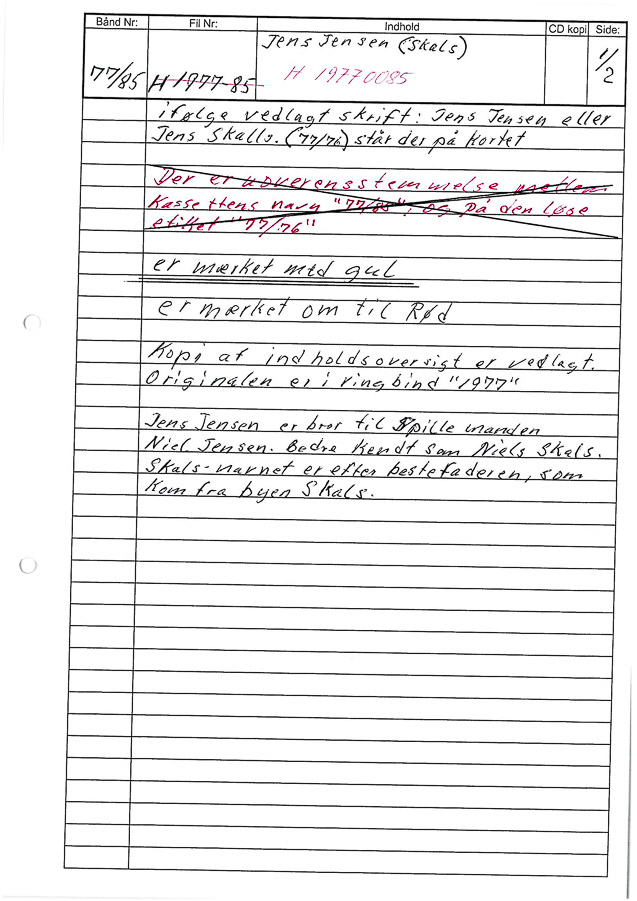 Bånd Nr: Fil Nr: Indhold CD kopi Side:
Jens Jensen (Skals)
77/85 H 1977-85 H 19770085 1/2
ifølge vedlagt skrift: Jens Jensen eller
Jens Skalls. (77/76) står der på kortet
Der er uoverensstemmelse mellem
Kassettens navn "77/85", og på den løse
etiket "77/76"
er mærket med gul
er mærket om til Rød
Kopi af indholdsoversigt er vedlagt.
Originalen er i ringbind "1977"
Jens Jensen er bror til Spillemanden
Niel Jensen. Bedre Kendt som Niels Skals.
Skals-navnet er efter bestefaderen, som
Kom fra byen Skals.